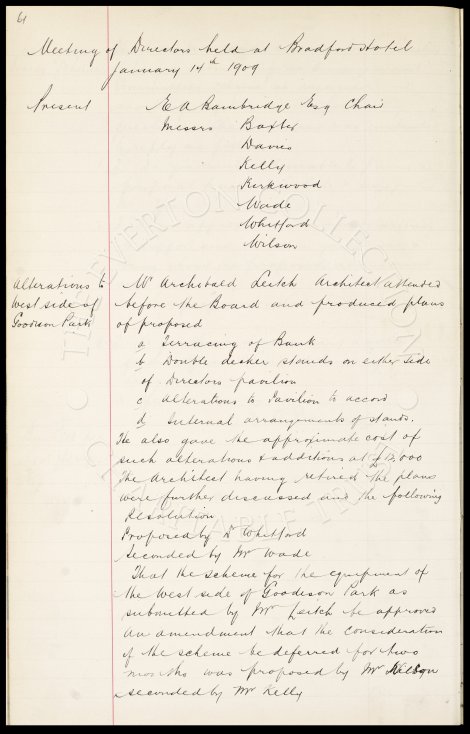 61
Meeting of Directors held at Bradford Hotel
January 14th 1909
Present
E A Bainbridge Esq Chair
Messrs Baxter
Davies
Kelly
Kirkwood
Wade
Whitford
Wilson
Alterations to
West side of
Goodison Park
Mr Archibald Leitch Architect attended
before the Board and produced plans
of proposed
a Terracing of Bank
b Double decker stands on either side
of Directors pavilion
c Alterations to Pavilion to accord
d Internal arrangements of stands.
He also gave the approximate cost of
such alterations & additions at £12,000
The Architect having retired the plans
were further discussed and the following
Resolution
Proposed by Dr Whitford
Seconded by Mr Wade
That the scheme for the equipment of
the West side of Goodison Park as
submitted by Mr Leitch be approved
An amendment that the consideration
of the scheme be deferred for two
months was proposed by Mr Wilson
seconded by Mr Kelly
THE EVERTON COLLECTION
CHARITABLE TRUST